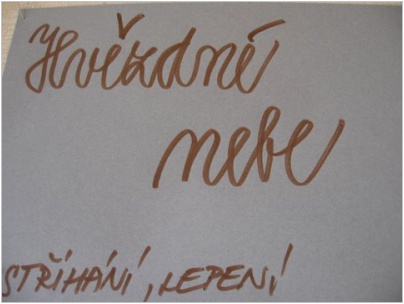 Hvězdné
nebe
STŘÍHÁNÍ, LEPENÍ